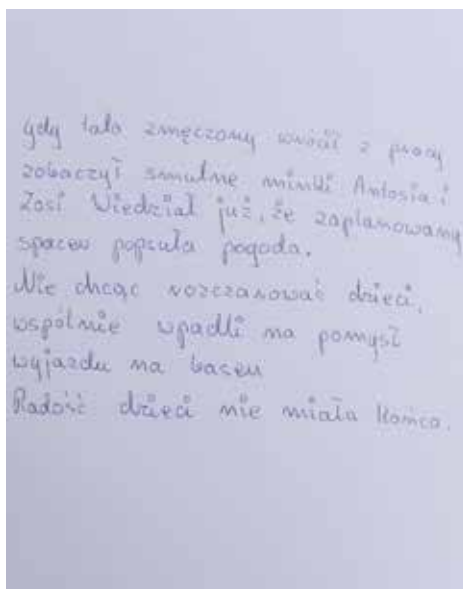 Gdy tato zmęczony wrócił z pracy
zobaczył smutne minki Antosia i
Zosi Wiedział już, że zaplanowany
spacer popsuła pogoda.
Nie chcąc rozczarować dzieci,
wspólnie wpadli na pomysł
wyjazdu na basen
Radość dzieci nie miała końca.